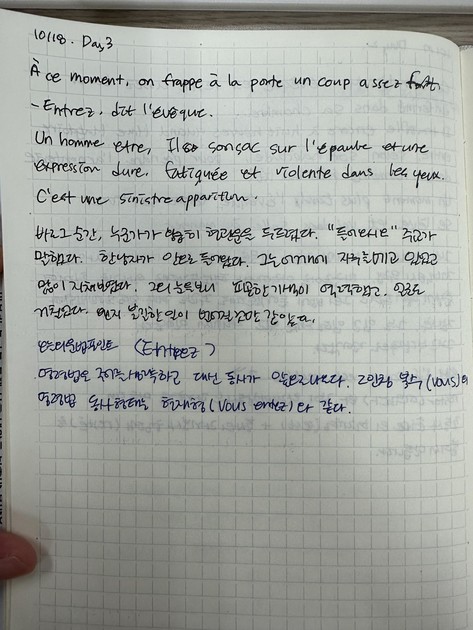 10/18. Day 3
À ce moment, on frappe à la porte un coup assez fort.
- Entrez, dit l'évêque.
Un homme entre, Il a son sac sur l'épaule et une
expression dure, fatiguée et violente dans les yeux.
C'est une sinistre apparition.
바로 그 순간, 누군가가 현관문을 두드렸다. "들어오시오" 주교가
말했다. 한 남자가 안으로 들어왔다. 그는 어깨에 자루를 메고 있었고
많이 지쳐보였다. 그의 눈에서 피곤한 기색이 역력했고,
거칠었다. 불길한 일이 것만 같았다.
포인트 (Entrez)
명령법은 주어를 생략하고 대신 동사가 앞으로 나온다. 2인칭 복수 (vous)의
명령법 동사형태는 현재형 (vous entrez)과 같다.